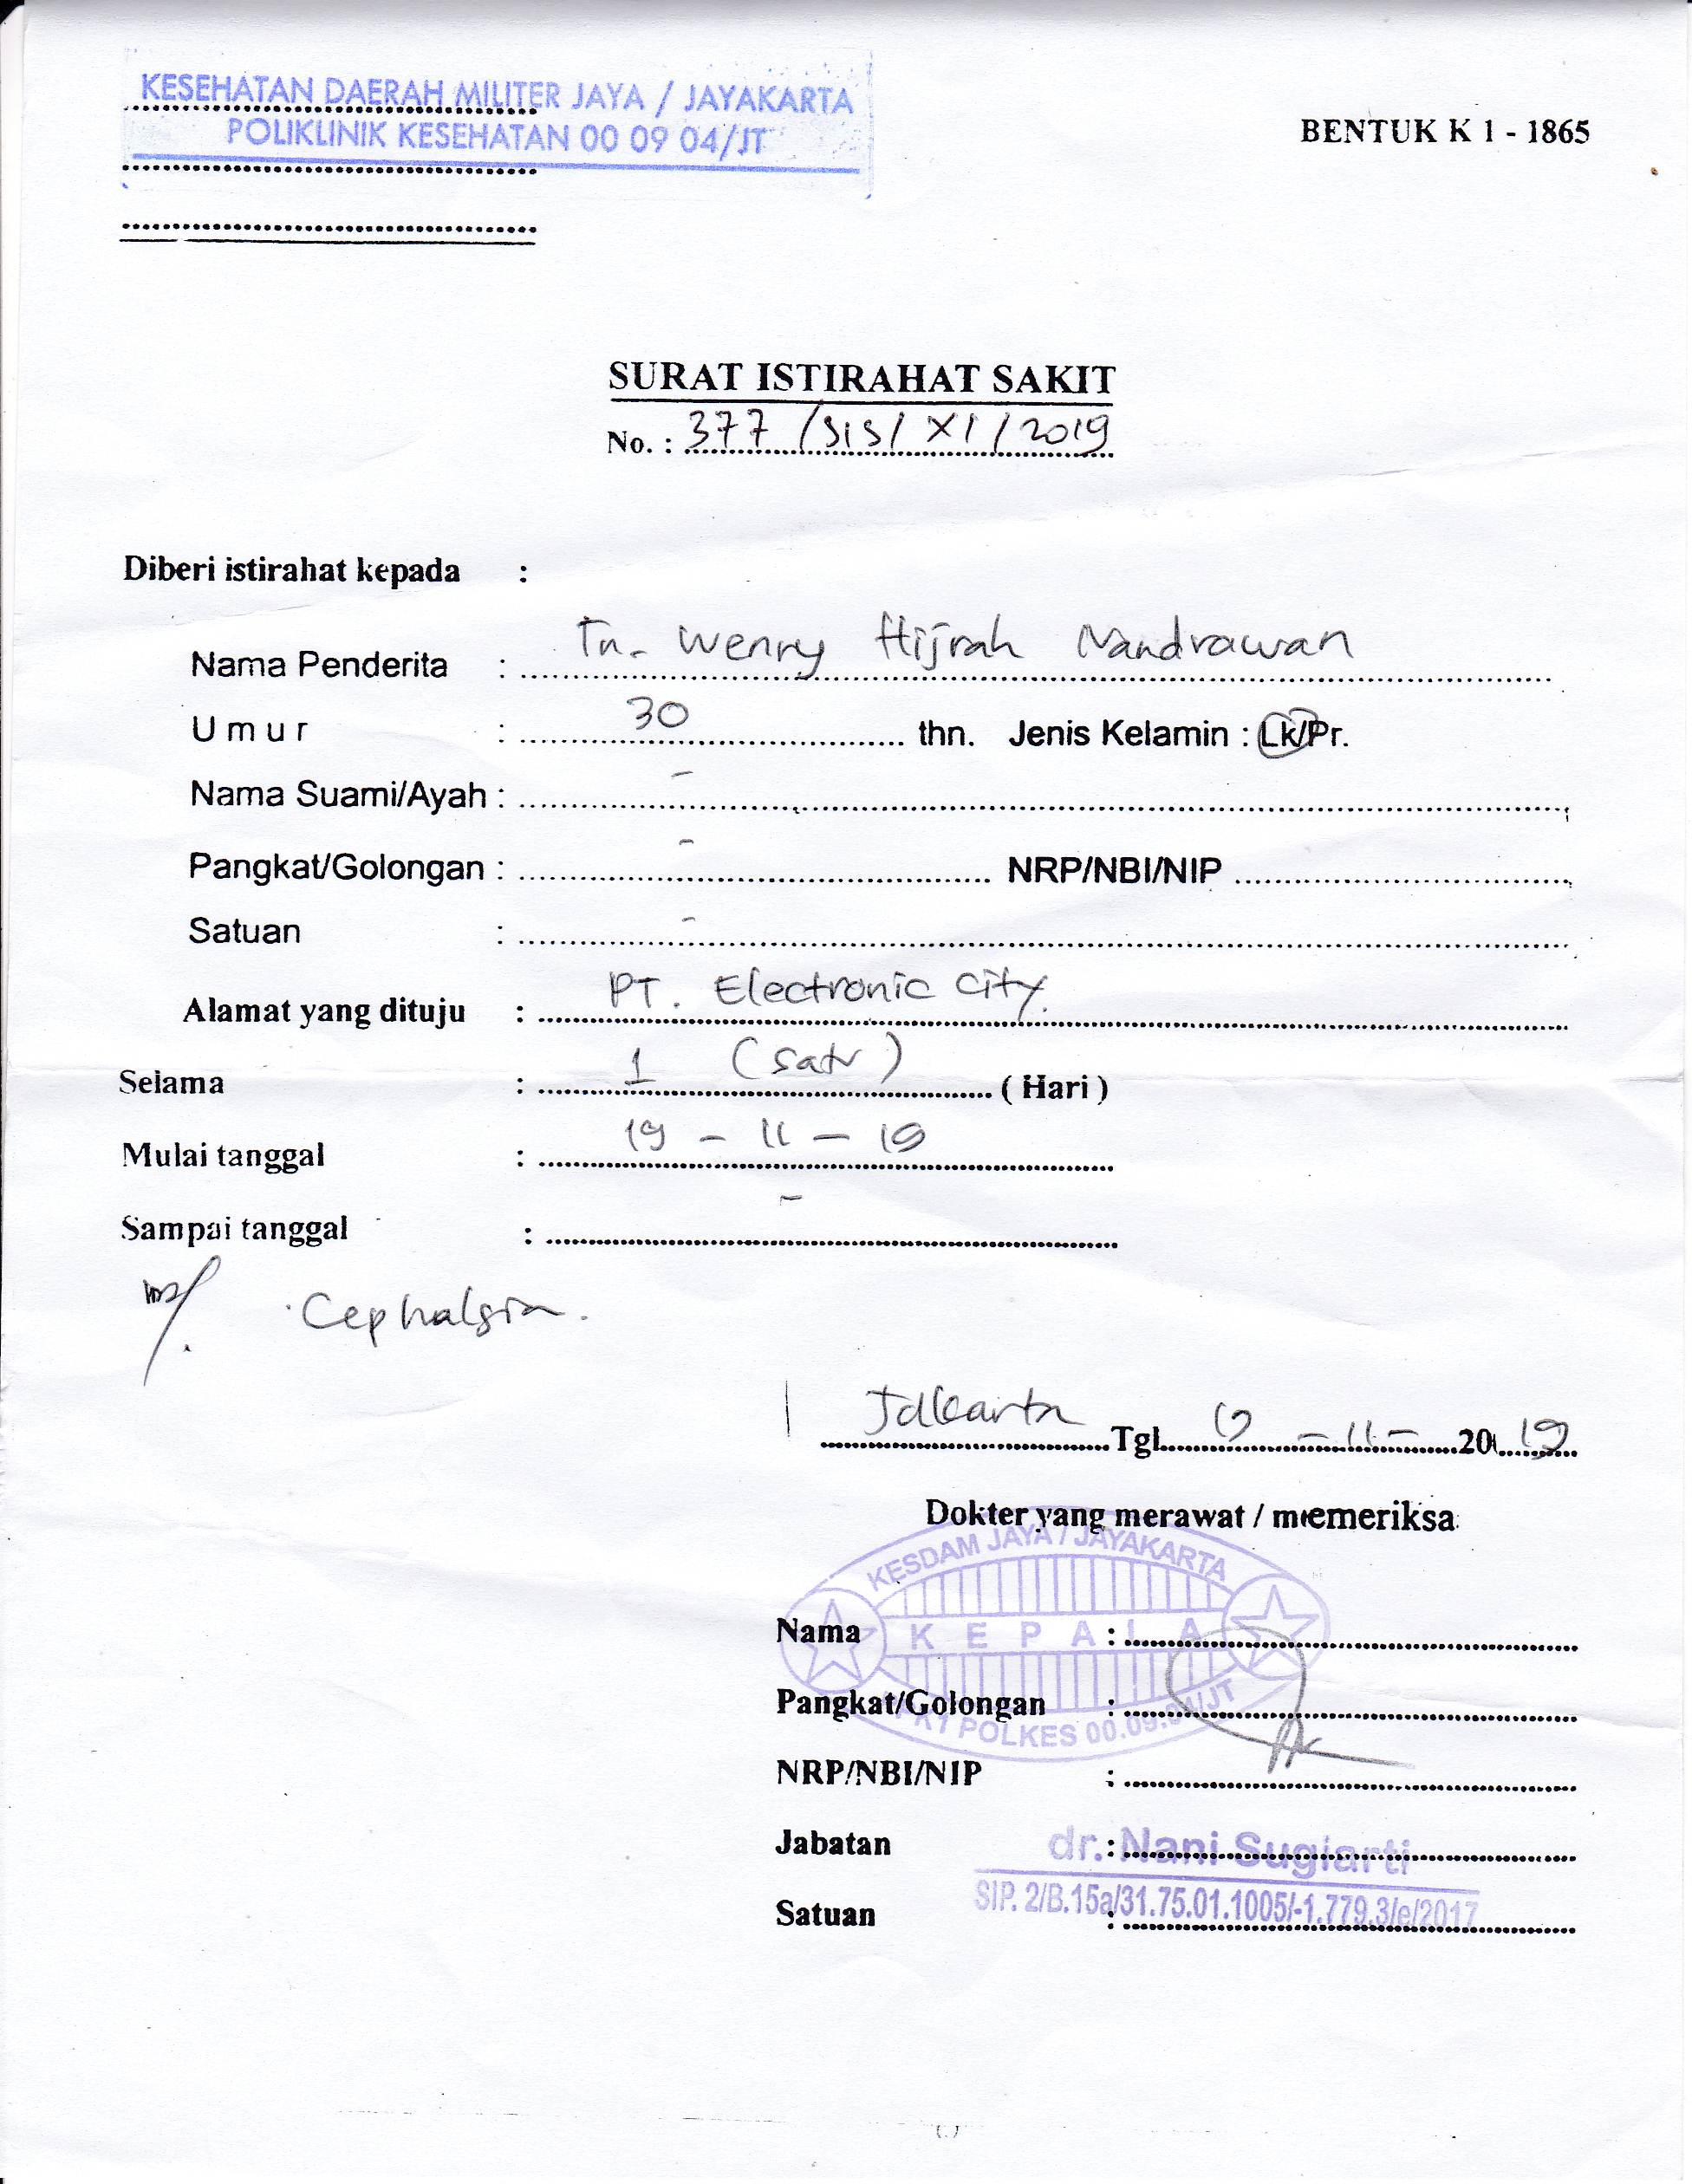 KESEHATAN DAERAH MILITER JAYA / JAYAKARTA
POLIKLINIK KESEHATAN 00 09 04/JT
BENTUK K 1 - 1865
SURAT ISTIRAHAT SAKIT
No. : 377 /SIS/ XI / 2019
Diberi istirahat kepada :
Nama Penderita : Tn. Wenry Hijrah Nandrawan
Umur : 30 thn. Jenis Kelamin : Lk/Pr.
Nama Suami/Ayah : -
Pangkat/Golongan : - NRP/NBI/NIP
Satuan : -
Alamat yang dituju : PT. Electronic City.
Selama : 1 (satu) ( Hari )
Mulai tanggal : 19 - 11 - 19
Sampai tanggal : -
Cephalgia.
Jakarta Tgl. 19 - 11 - 2019
Dokter yang merawat / memeriksa
KESDAM JAYA / JAYAKARTA
KEPALA
POLKES 00.09.04/JT
Nama :
Pangkat/Golongan :
NRP/NBI/NIP :
Jabatan :
dr. Nani Sugiarti
SIP. 2/B.15a/31.75.01.1005/-1.779.3/e/2017
Satuan :